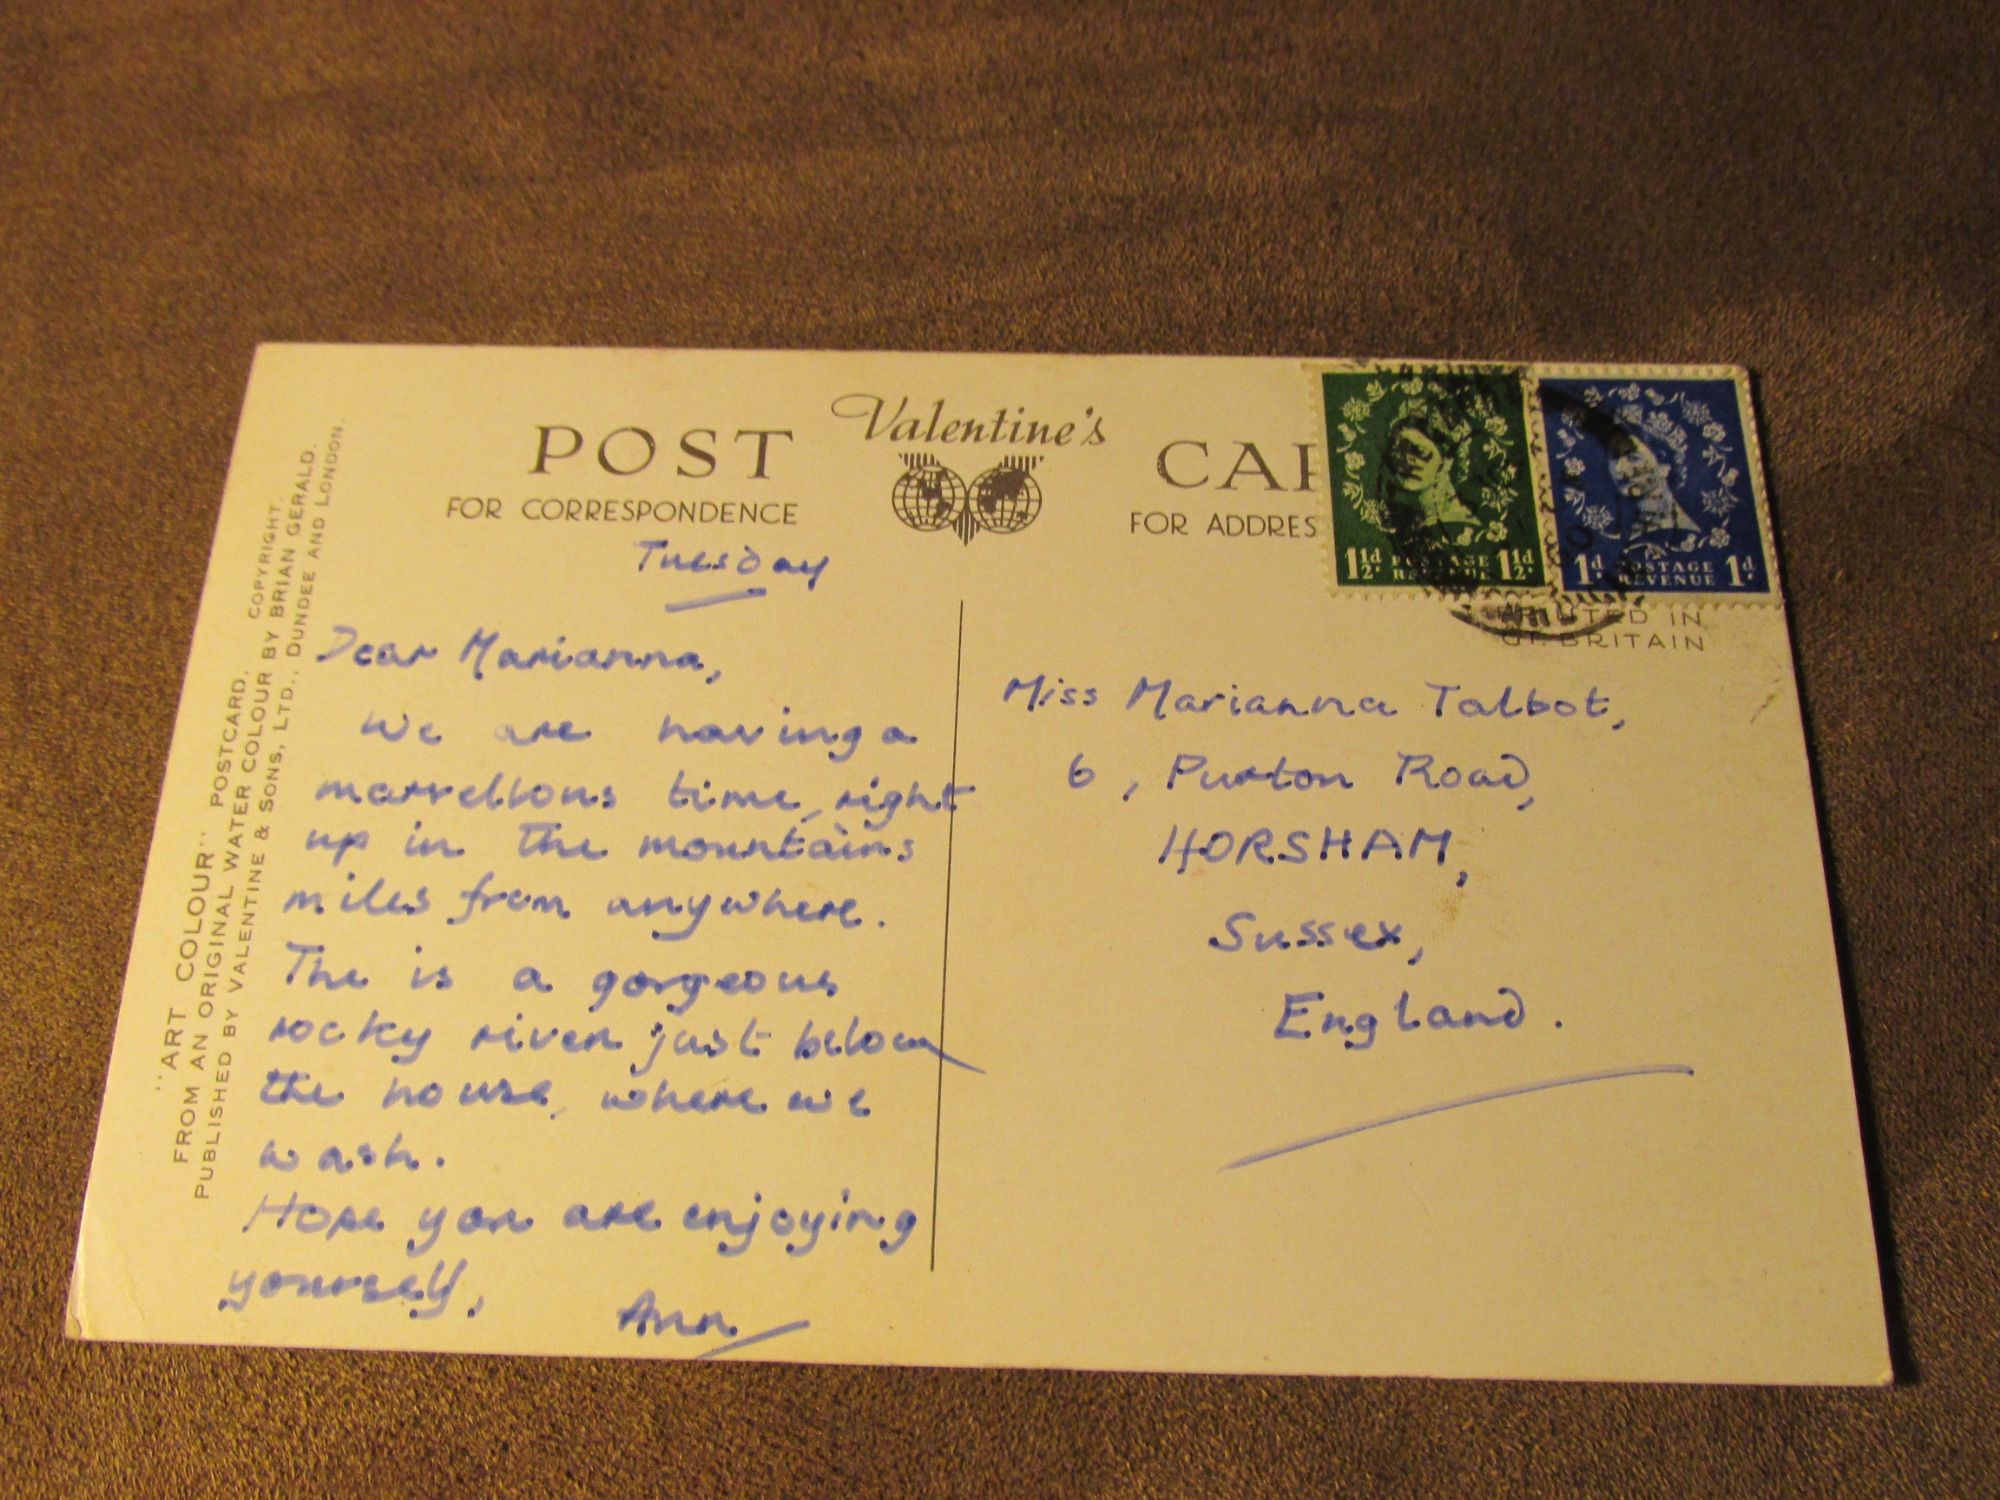 Valentine's
POST CAR
FOR CORRESPONDENCE
FOR ADDRES
1½d POSTAGE 1½d
REVENUE
1d. POSTAGE 1d.
REVENUE
PRINTED IN
GT. BRITAIN
"ART COLOUR" POSTCARD. COPYRIGHT
FROM AN ORIGINAL WATER COLOUR BY BRIAN GERALD.
PUBLISHED BY VALENTINE & SONS, LTD., DUNDEE AND LONDON.
Tuesday
Dear Marianna,
We are having a
marvellous time, right
up in the mountains
miles from anywhere.
The is a gorgeous
rocky river just below
the house, where we
wash.
Hope you are enjoying
yourself,
Ann
Miss Marianna Talbot,
6, Purton Road,
HORSHAM,
Sussex,
England.